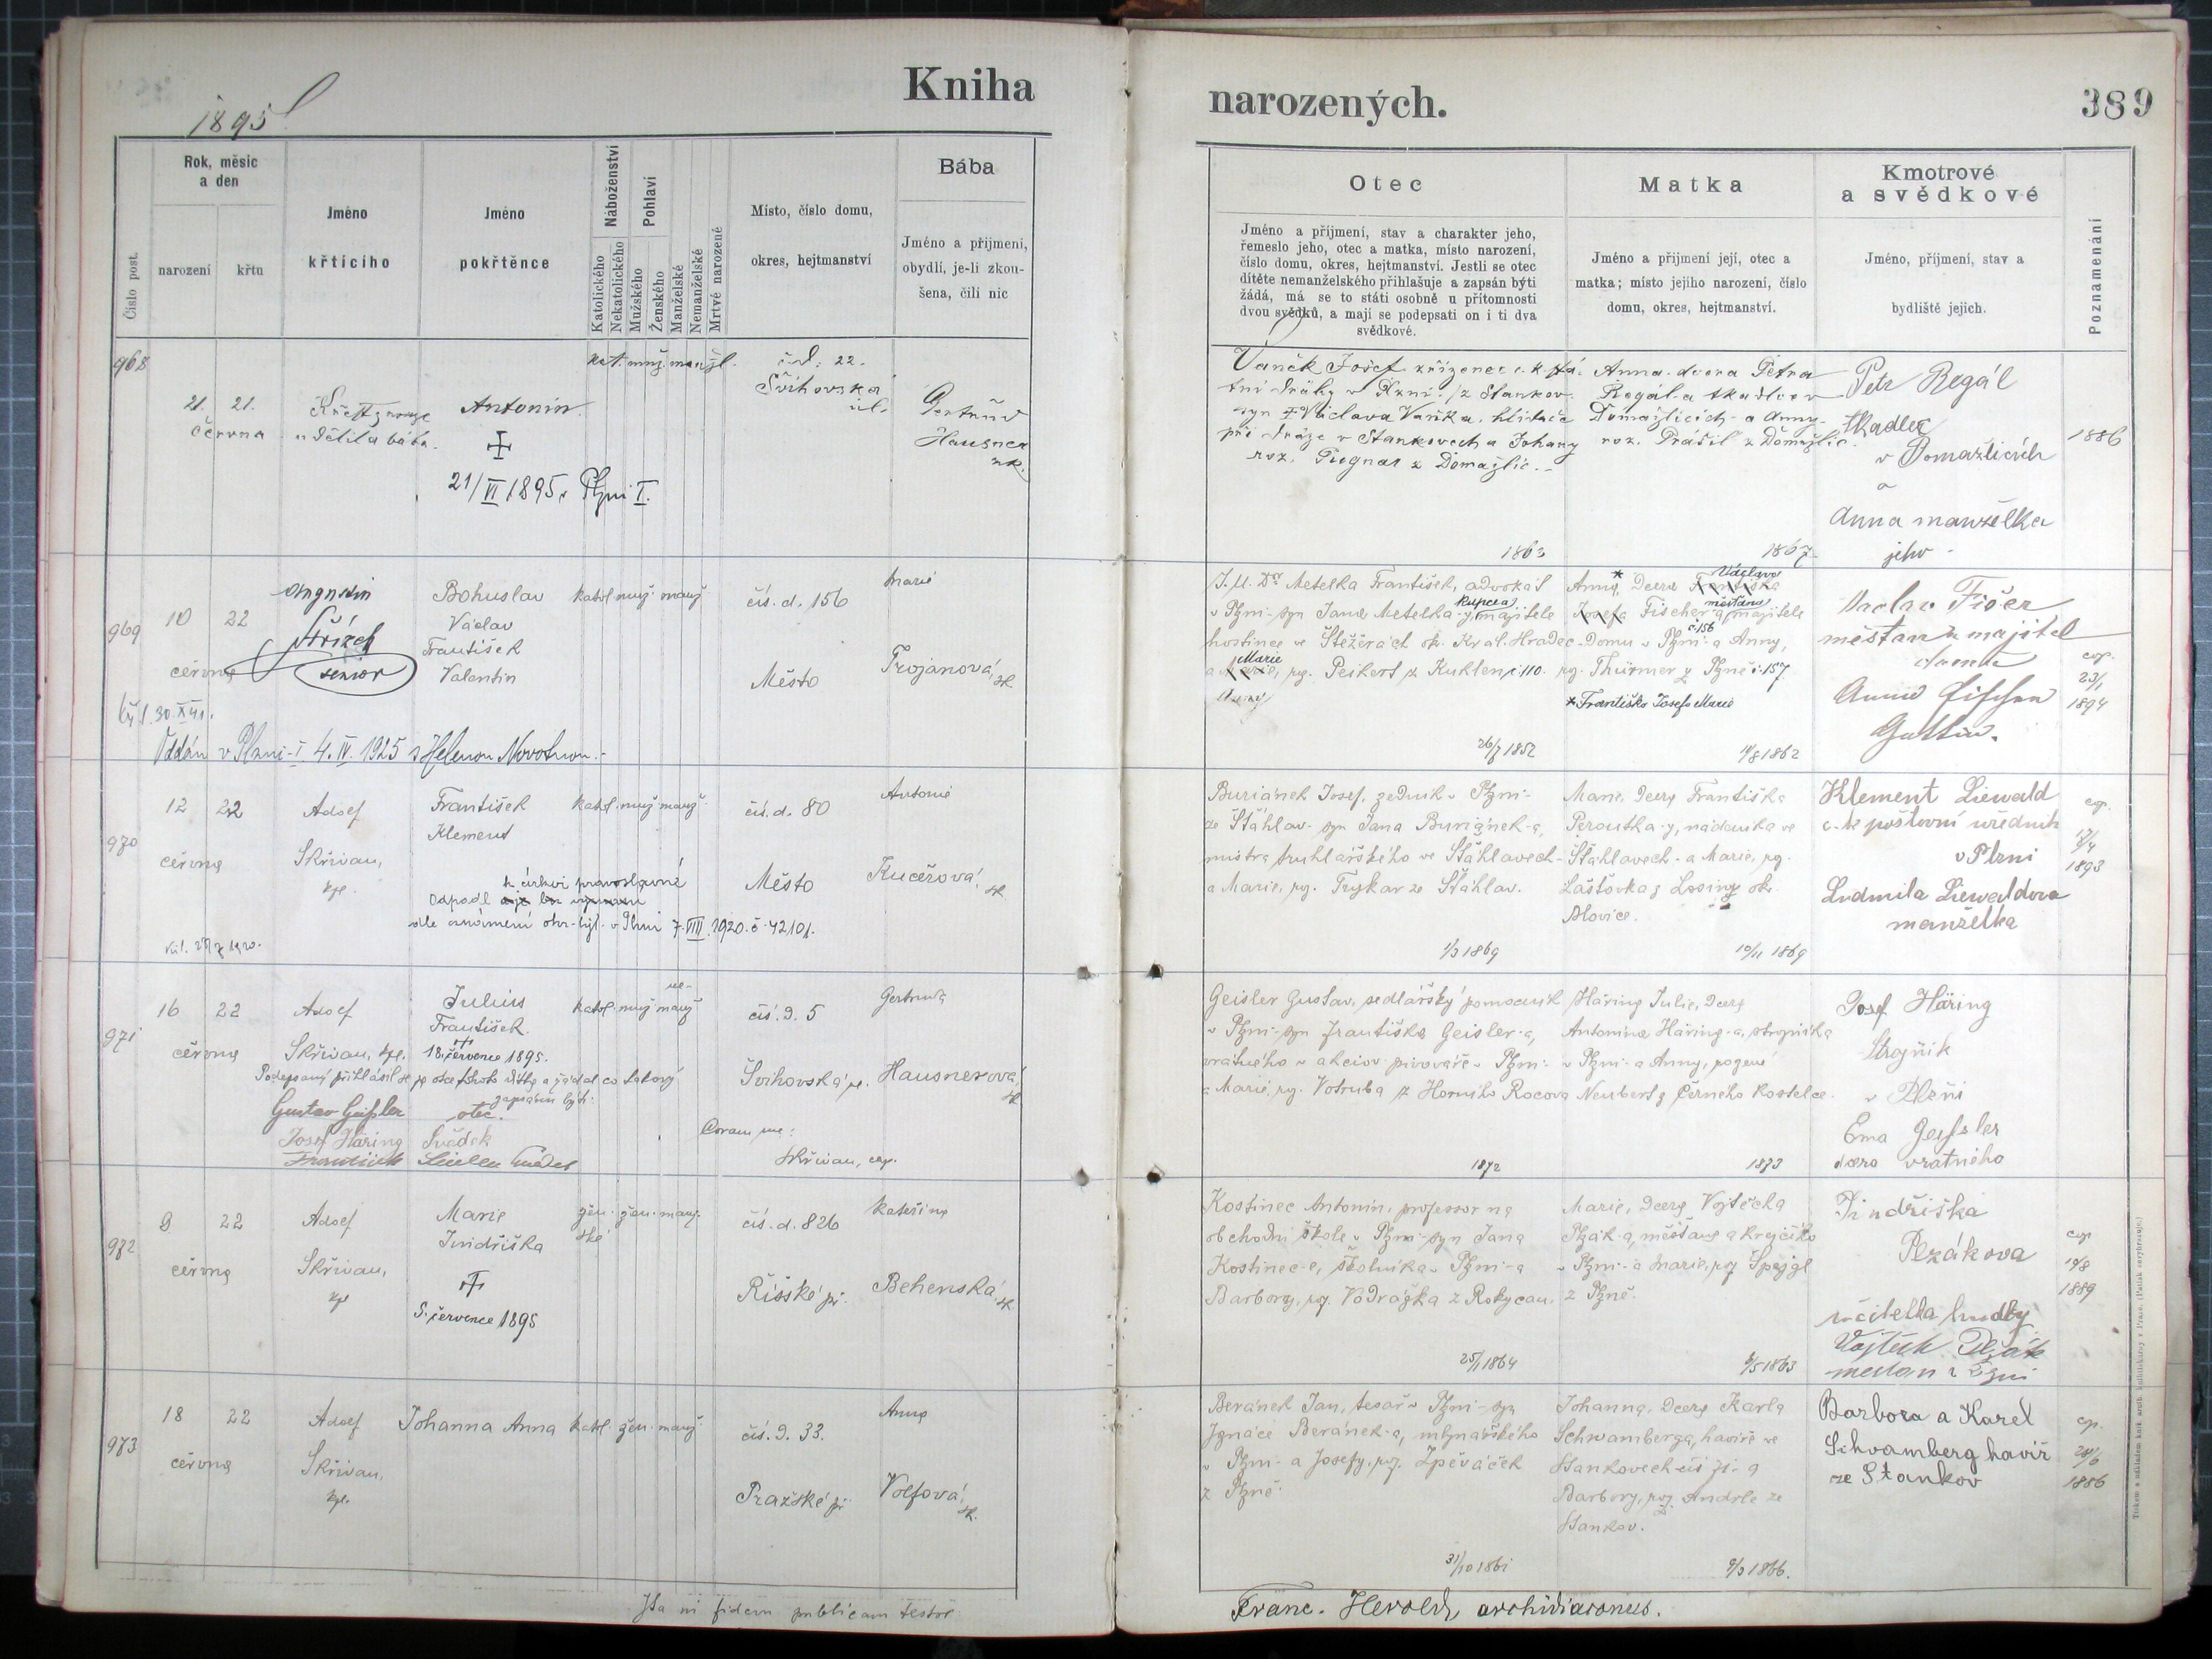 Kniha
narozených.
389
1895
Číslo post.
Rok, měsíc
a den
narození
křtu
Jméno
křtícího
Jméno
pokřtěnce
Náboženství
Katolického
Nekatolického
Pohlaví
Mužského
Ženského
Manželské
Nemanželské
Mrtvé narozené
Místo, číslo domu,
okres, hejtmanství
Bába
Jméno a přijmení,
obydlí, je-li zkou-
šena, čili nic
Otec
Jméno a příjmení, stav a charakter jeho,
řemeslo jeho, otec a matka, místo narození,
číslo domu, okres, hejtmanství. Jestli se otec
dítěte nemanželského přihlašuje a zapsán býti
žádá, má se to státi osobně u přítomnosti
dvou svědků, a mají se podepsati on i ti dva
svědkové.
Matka
Jméno a přijmení její, otec a
matka; místo jejího narození, číslo
domu, okres, hejtmanství.
Kmotrové
a svědkové
Jméno, příjmení, stav a
bydliště jejich.
Poznamenání
968
21. 21.
června
Křest z nouze
udělila bába.
Antonín
21/VI 1895 v Plzni I.
kat. muž. manžl.
č. d: 22.
Švihovská
ul.
Gertrud
Hausner
zk.
Vaněk Josef zřízenec c. k. stá-
tní dráhy v Plzni z Stankov
syn † Václava Vaňka, hlídače
při dráze v Stankovech a Johany
roz. Ziegner z Domažlic.
1863
Anna dcera Petra
Regál-a tkadlce v
Domažlicích a Anny
roz. Prášil z Domažlic.
1867
Petr Regál
tkadlec
v Domažlicích
a
Anna manželka
jeho
1886
969
10 22
června
Augustin
Střízek
senior
Bohuslav
Václav
František
Valentin
katol. muž. manž.
čís. d. 156
Město
Marie
Trojanová, zk.
Oddán v Plzni-I 4. IV. 1925 s Helenou Novotnou.-
J. U. Dr Metelka František, advokát
v Plzni- syn Jana Metelka-y, kupce a majitele
hostince ve Stěžerách ok. Král. Hradec-
a Marie, roz. Peikert z Kuklen č. 110.
Anny
26/7 1852
Anna,* Dcera Františka Václava
Josefa Fischer-a, měšťana majitele
Domu v Plzni č 156 a Anny,
roz. Thürmer z Plzně č. 157
* Františka Josefa Marie
1862
Václav Fišer
měšťan a majitel
domu
Anna Fischer
Gattin.
cop.
23/1
1894
970
12 22
června
Adolf
Skřivan,
kpl.
František
Klement
katol. muž. manž.
čís. d. 80
Město
Antonie
Kučerová, zk.
odpadl k církvi pravoslavné
dle oznámení okr. hejt. v Plzni 7. VIII. 1920. č. 42101.
Buriánek Josef, zedník v Plzni-
ze Šťáhlav- syn Jana Buriánek-a,
mistra truhlářského ve Šťáhlavech-
a Marie, roz. Trykar ze Šťáhlav.
1/3 1869
Marie, Dcera Františka
Peroutka-y, nádeníka ve
Šťáhlavech- a Marie, roz.
Laštovka z Losiny ok.
Blovice.
10/11 1869
Klement Liewald
c. k. poštovní úředník
v Plzni
Ludmila Liewaldova
manželka
cop.
1893
971
16 22
června
Adolf
Skřivan, kpl.
Julius
František.
18. července 1895.
katol. muž. ne-manž.
čís. d. 5
Švihovská ul.
Gertruda
Hausnerová, zk.
Podepsaný přihlásil se za otce tohoto dítka a žádal co takový
zapsán býti:
Gustav Geissler otec.
Josef Häring Svědek
František
Coram me:
Skřivan, cap.
Geisler Gustav, sedlářský pomocník
v Plzni- syn Františka Geisler-a,
vrátného v akciov. pivováře v Plzni-
a Marie, roz. Votruba z Horního Rocova
1872
Häring Julie, Dcera
Antonína Häring-a, strojníka
v Plzni- a Anny, rozené
Neubert z Černého Kostelce.
1873
Josef Häring
Strojník
v Plzni
Ema Geissler
dcera vrátného
972
9 22
června
Adolf
Skřivan,
kpl
Marie
Jindřiška
5. července 1895
žen. žen. manž.
čís. d. 826
Říšské př.
Kateřina
Behenská, zk.
Kostinec Antonín, professor na
obchodní škole v Plzni- syn Jana
Kostinec-e, školníka v Plzni- a
Barbory, roz. Vodrážka z Rokycan.
25/1 1864
Marie, Dcera Vojtěcha
Plzák-a, měšťana a krejčího
v Plzni- a Marie, roz. Špejgl
z Plzně.
1863
Jindřiška
Plzákova
učitelka hudby
Vojtěch Plzák
měšťan v Plzni
cop
1889
973
18 22
června
Adolf
Skřivan,
kpl.
Johanna Anna
katol. žen. manž.
čís. d. 33.
Pražské př.
Anna
Volfová, zk.
Beránek Jan, tesař v Plzni- syn
Ignáce Beránek-a, mlynářského
v Plzni- a Josefy, roz. Zpěváček
z Plzně.
31/10 1861
Johanna, Dcera Karla
Schwamberga, havíře ve
Stankovech a
Barbory, roz. Andrle ze
Stankov.
9/3 1866.
Barbora a Karel
Schvamberg havíř
ze Stankov
cp.
1886
Ita in fidem publicam testor
Franc. Herold, archidiaconus.